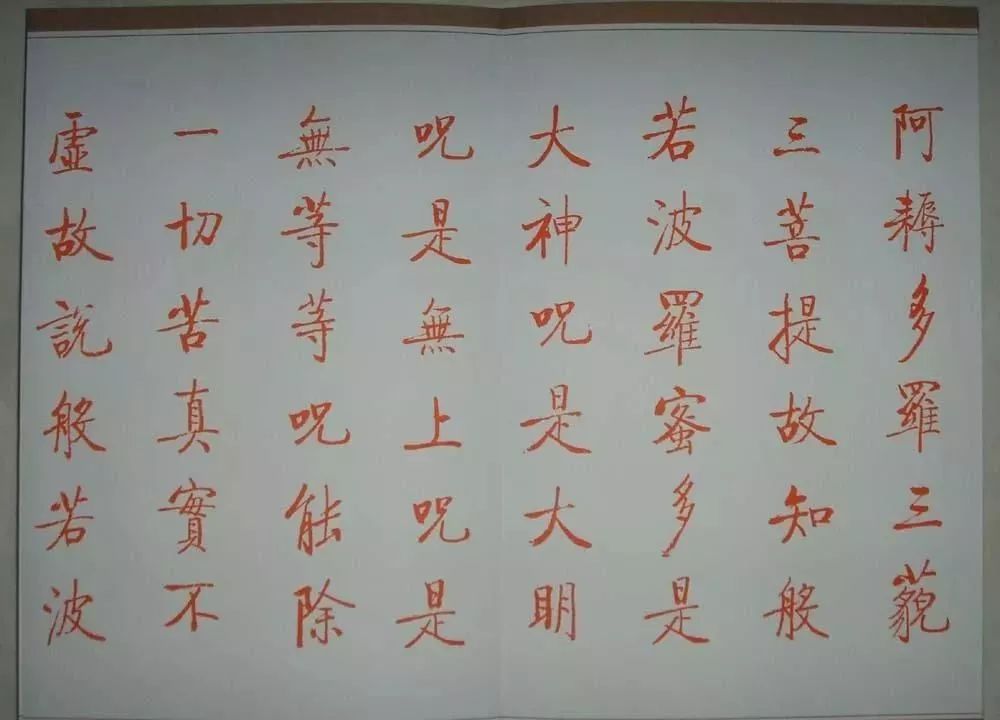 阿耨多羅三藐
三菩提故知般
若波羅蜜多是
大神咒是大明
咒是無上咒是
無等等咒能除
一切苦真實不
虛故說般若波